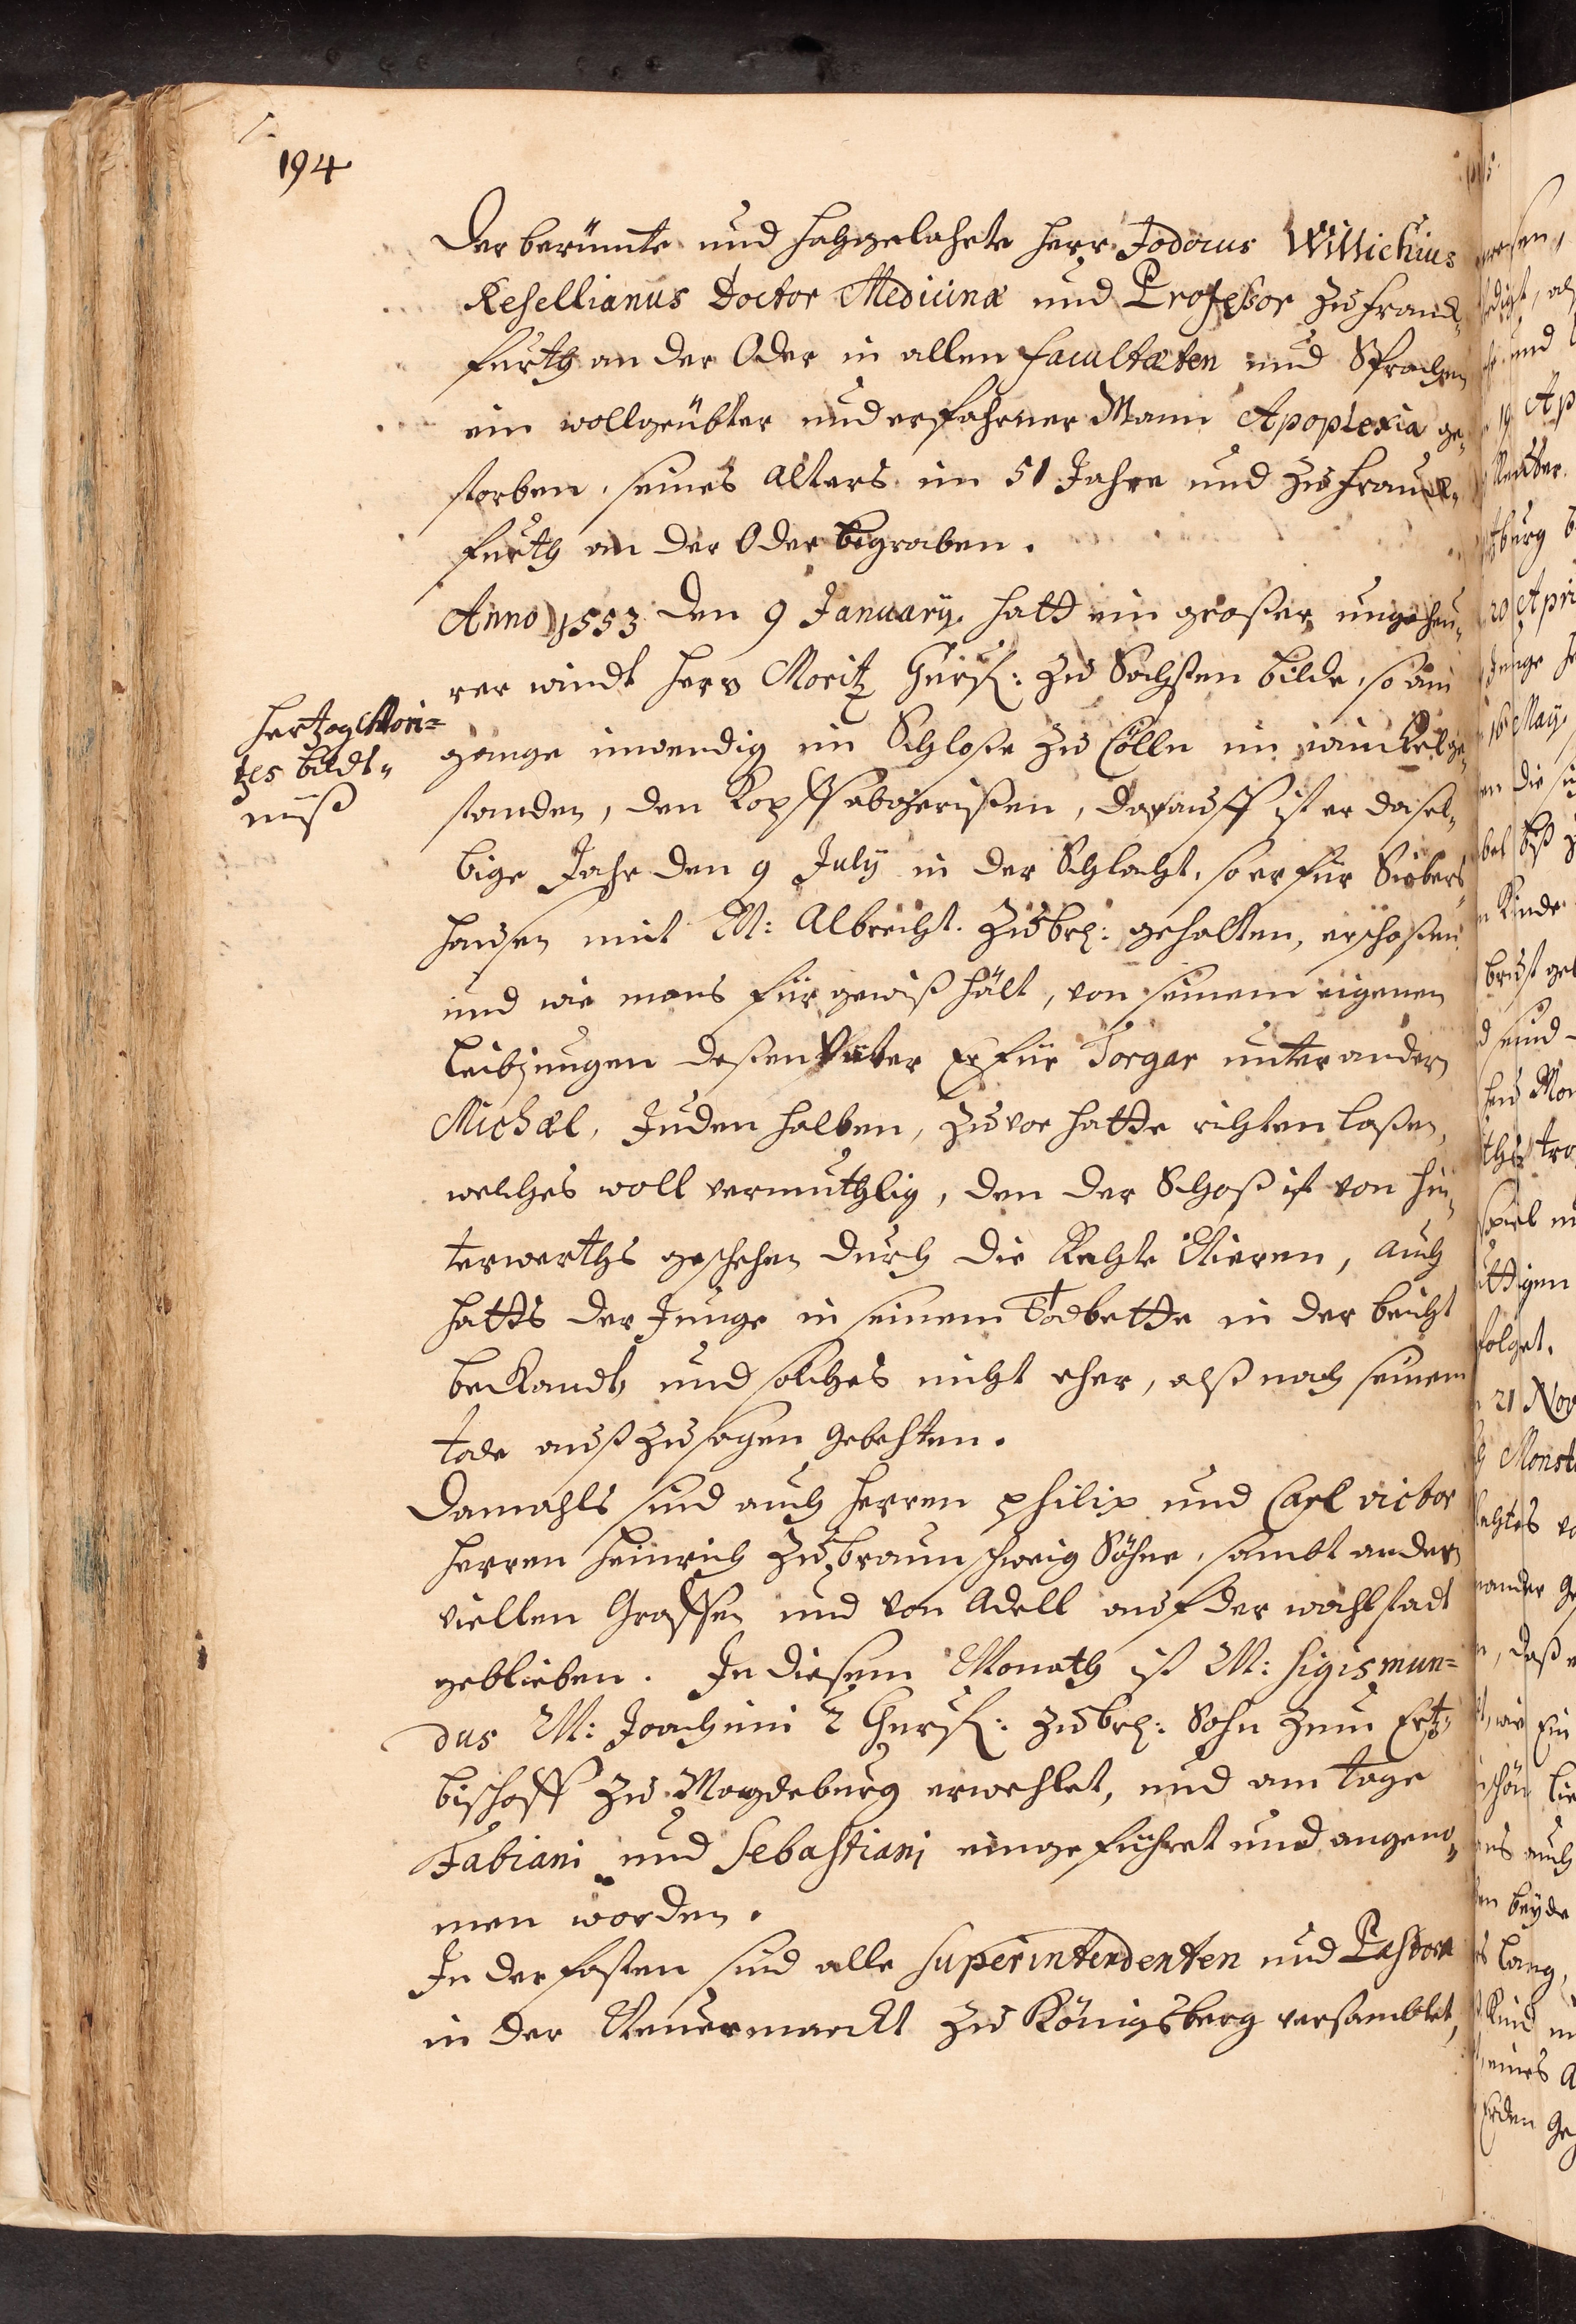 194
Der berümte und hochgelahrte Herr Jodocus Willichius
Resellianus Doctor Medicinæ und Professor zu Franck„
furth an der Oder in allen Facultæten und Sprachen
ein wollgeübter und erfahrner Mann Apoplexia ge„
storben, seines Alters im 51 Jahre und zu Franck„
furth an der Oder begraben.
Anno 1553 den 9 January. hatt ein großer, ungeheu„
rer windt Herr Moritz Churf: zu Sachßen bilde, so am
Hertzog Mori=
tzes bildt„
nuß
gange inwendig im Schloße zu Cölln im winckel ge„
standen, den Kopff abgerißen, darauff ist er dasel„
bige Jahr den 9 July in der Schlacht, so er für Siebers„
hausen mit M: Albrecht. zu brl: gehalten, erschoßen
und wie mans für gewiß hält, von seinem eigenen
Leibjungen deßen Vater Er für Torgar unter andern
Michæl, Juden halben, zuvor hatte richten laßen,
welches woll vermuthlig, den der Schoß ist von hin„
terwerths geschehen durch die Rechte Nieren, auch
hatts der Junge in seinem Todbette in der beicht
beckandt, und solches nicht eher, alß nach seinem
tode auß zu sagen gebehten.
Damahls sind auch Herren Philip und Carl victor
Herren Heinrich zu braunschweig Söhne, sambt andern
viellen Graffen und von Adell auf der wahlstadt
geblieben. In diesem Monath ist M: Sigismun=
dus M: Joachimi 2 Churf: zu brl: Sohn zum Ertz„
bischoff zu Magdeburg erwehlet, und am tage
Fabiani und Sebastiani eingeführet und angeno„
men worden.
In der fasten sind alle Superintendenten und Pastores
in der Neuermarckt zu Königsberg versamblet,